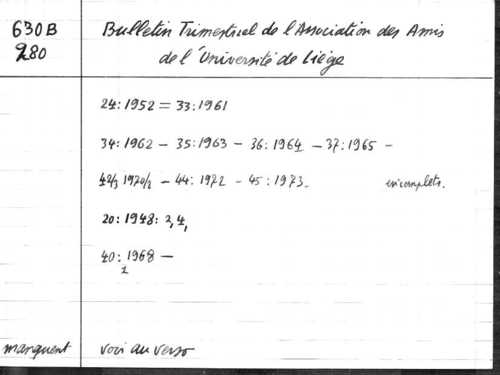 630B
280
Bulletin Trimestriel de l'Association des Amis
de l'Université de Liège
24:1952 = 33:1961
34:1962 - 35:1963 - 36:1964 - 37:1965 -
42/3 1970/2 - 44:1972 - 45:1973. incomplets.
20:1948: 3,4,
40:1968 -
1
manquent voir au verso